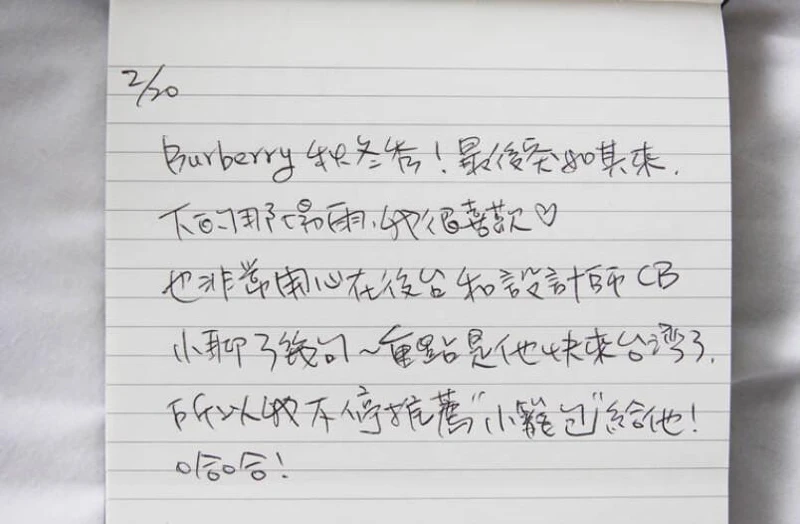 2/20
Burberry 秋冬秀！最後突如其來.
下的那場雨,我很喜歡♡
也非常用心在後台和設計師CB
小聊了幾句~重點是他快來台灣了.
所以我不停推薦"小籠包"給他!
哈哈!